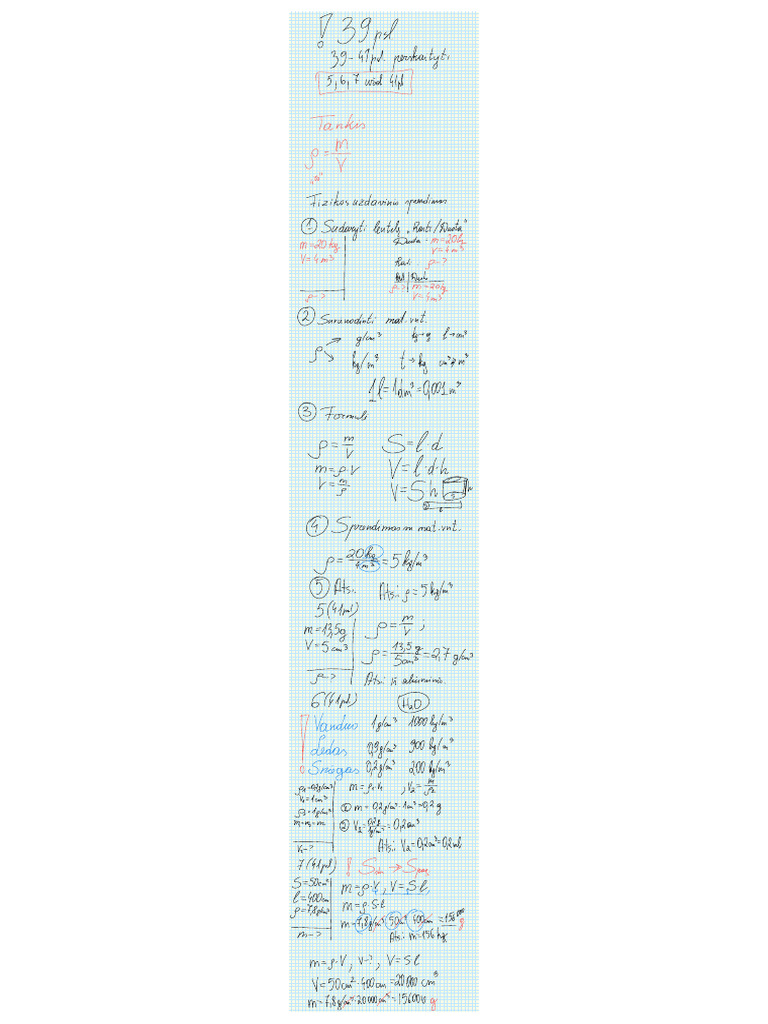 ! 39 psl
39-41 psl. perskaityti
5, 6, 7 užd 41pl
Tankis
ρ = m/V
"ro"
Fizikos uždavinio sprendimas
① Sudaryti lentelę „Rasti/Duota"
m=20 kg
V=4 m³
ρ-?
Duota - m=20kg
V=4m³
Rasti. ρ-?
Rasti | Duota
ρ-? | m=20kg
V=4m³
② Suvienodinti mat. vnt.
ρ → g/cm³ kg→g l→cm³
↘ kg/m³ t→kg cm³→m³
1l=1dm³=0,001m³
③ Formulė
ρ = m/V S=l·d
m=ρ·V V=l·d·h
V=m/ρ V=Sh
④ Sprendimas su mat. vnt.
ρ = 20kg/4m³ = 5 kg/m³
⑤ Ats.: Ats.: ρ = 5 kg/m³
5 (41psl)
m=13,5g ρ = m/V ;
V=5 cm³
ρ = 13,5 g/5cm³ = 2,7 g/cm³
ρ-? Ats: iš aliuminio.
6 (41psl) H₂O
! Vanduo 1 g/cm³ 1000 kg/m³
Ledas 0,9 g/cm³ 900 kg/m³
Sniegas 0,2 g/cm³ 200 kg/m³
ρ₁=0,2g/cm³ m=ρ₁·V₁ , V₂= m/ρ₂
V₁=1cm³
ρ₂=1g/cm³ ① m = 0,2g/cm³·1cm³=0,2 g
m₁=m₂=m ② V₂= 0,2g/1g/cm³ = 0,2cm³
V₂-? Ats.: V₂=0,2cm³=0,2ml
7 (41psl)
S=50cm²
l=400cm m=ρ·V, V=S·l,
ρ=7,8g/cm³ m=ρ·S·l
m=7,8g/cm³·50cm²·400cm=156000 g
m-? Ats.: m=156 kg
m=ρ·V, V-?, V=S·l
V=50cm²·400cm=20000 cm³
m=7,8g/cm³·20000cm³=156000 g